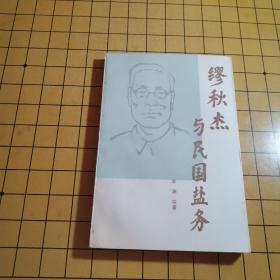 缪秋杰
与民国盐务